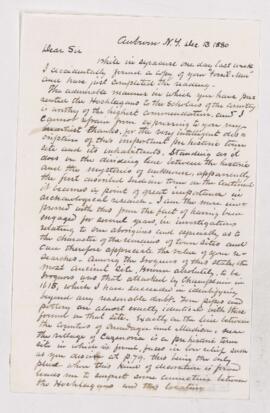 Auburn N.Y. Dec 13 1880
Dear Sir
While in Syracuse one day last week
I accidentally found a copy of your "Fossil Men"
and have just completed the reading.
The admirable manner in which you have pre
sented the Hochelagans to the scholars of the country
is worthy of the highest commendation, and I
cannot refrain from expressing to you my
heartiest thanks, for the very intelligent de
scription of this important pre historic town
site and its inhabitants. Standing as it
does on the dividing line between the historic
and the mysteries of unknown, apparently
the first ancient Indian town on the continent
it becomes a point of great importance in
archaeological research. I am the more im
pressed with this from the fact of having been
engaged for several years in investigations
relating to our aborigines and especially as to
the character of the remains of town sites and
can therefore appreciate the value of your re
searches. Among the Iroquois of this state, the
most ancient site, known absolutely, to be
Iroquois was that attacked by Champlain in
1615, which I have succeeded in identifying
beyond any reasonable doubt. Your pipes and
pottery are almost exactly identical with those
found on that site. Exactly on the line between
the counties of Onondaga and Madison, near
the village of Cazenovia is a pre historic town
site in which is found faces in low relief such
as you describe at p 79. this being the only
place when this kind of decoration is found
leads me to suspect some connection between
the Hochelagans and this locality